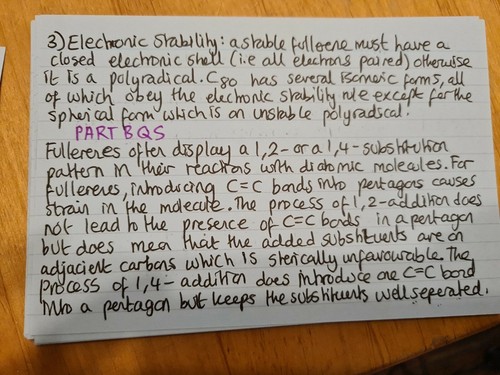 3) Electronic Stability: a stable fullerene must have a
closed electronic shell (i.e all electrons paired) otherwise
it is a polyradical. C80 has several isomeric forms, all
of which obey the electronic stability rule except for the
spherical form which is an unstable polyradical.
PART B QS
Fullerenes often display a 1,2- or a 1,4-substitution
pattern in their reactions with diatomic molecules. For
fullerenes, introducing C=C bonds into pentagons causes
strain in the molecule. The process of 1,2-addition does
not lead to the presence of C=C bonds in a pentagon
but does mean that the added substituents are on
adjacient carbons which is sterically unfavourable. The
process of 1,4-addition does introduce one C=C bond
into a pentagon but keeps the substituents well seperated.